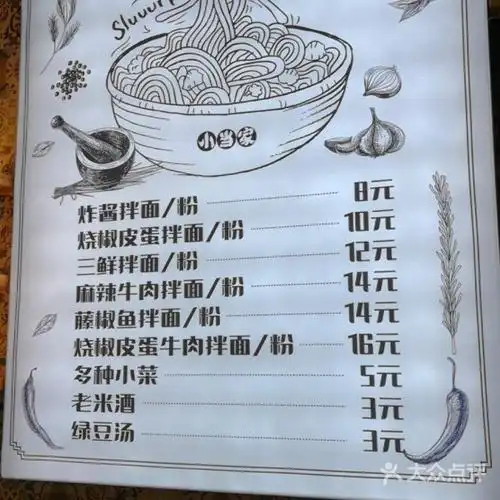 Sluuurp
小当家
炸酱拌面/粉 8元
烧椒皮蛋拌面/粉 10元
三鲜拌面/粉 12元
麻辣牛肉拌面/粉 14元
藤椒鱼拌面/粉 14元
烧椒皮蛋牛肉拌面/粉 16元
多种小菜 5元
老米酒 3元
绿豆汤 3元
大众点评